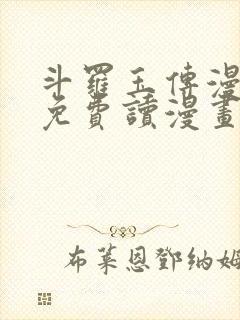 斗羅玉傳漫
免費讀漫畫
布萊恩鄧納姆